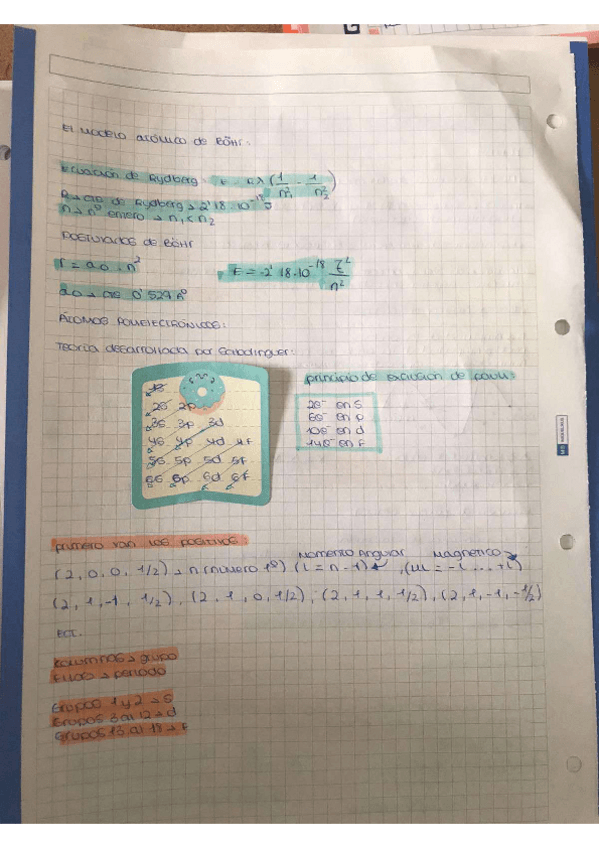 El modelo atómico de Böhr:
Ecuación de Rydberg E = Rx (1/n²1 - 1/n²2)
R → cte de Rydberg → 2'18·10⁻¹⁸ J
n → nº entero → n1 < n2
POSTULADOS de BÖHR
r = a0 · n²
E = -2'18·10⁻¹⁸ Z²/n²
a0 → cte 0'529 Aº
ÁTOMOS POLIELECTRÓNICOS:
Teoría desarrollada por
principio de exclusión de Pauli:
1s
2s 2p
3s 3p 3d
4s 4p 4d 4f
5s 5p 5d 5f
6s 6p 6d 6f
2e⁻ en s
6e⁻ en p
10e⁻ en d
14e⁻ en f
primero van los positivos
Momento Angular Magnetico
(2, 0, 0, 1/2) → n (número 1º) (l = n - 1), (m = -l ... +l)
(2, 1, -1, 1/2), (2, 1, 0, 1/2), (2, 1, 1, 1/2), (2, 1, -1, -1/2)
ECT.
Columnas → grupo
Filas → período
Grupos 1 y 2 → s
Grupos 3 al 12 → d
Grupos 13 al 18 → F